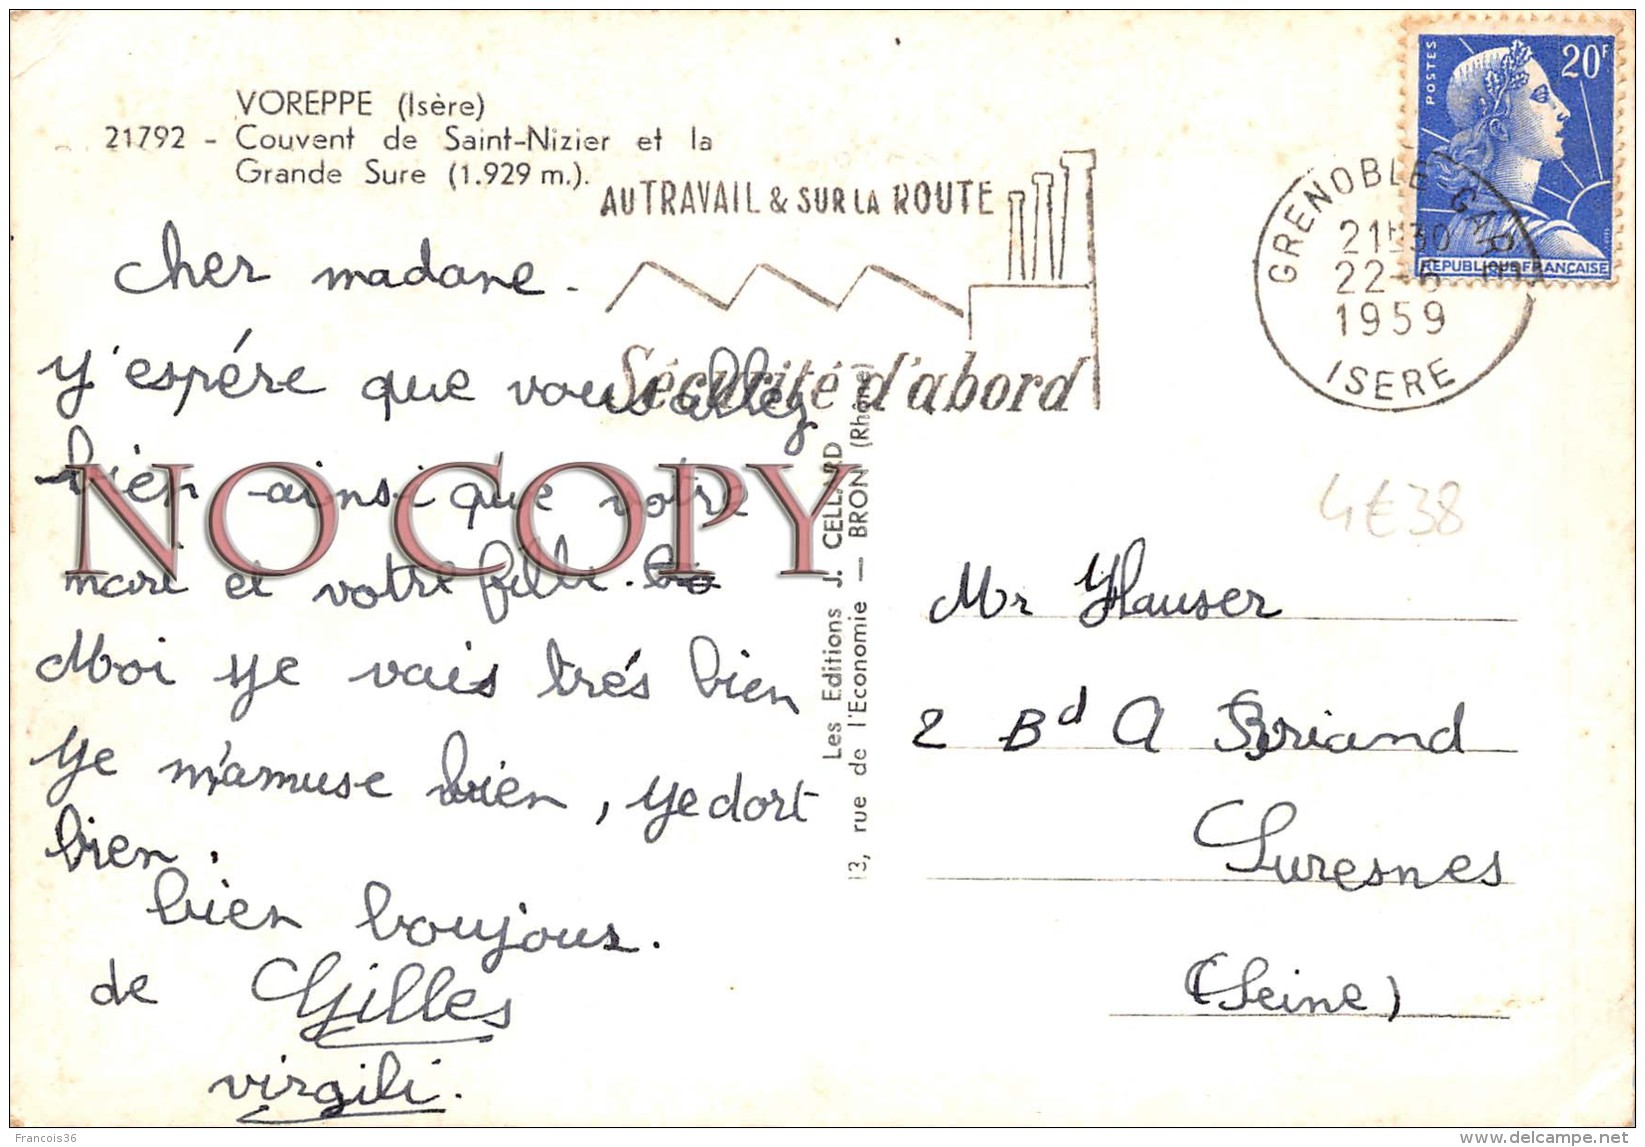 VOREPPE (Isère)
21792 - Couvent de Saint-Nizier et la
Grande Sure (1.929 m.).
AU TRAVAIL & SUR LA ROUTE
Sécurité d'abord
GRENOBLE GARE
21H30
22-6
1959
ISERE
POSTES
20F
REPUBLIQUE FRANÇAISE
cher madane.
y'espére que vous allez
bien ainsi que votre
mari et votre fille.
Moi ye vais trés bien
ye m'amuse bien, ye dort
bien.
bien boujour.
de Gilles
virgili.
Les Editions J. CELLARD
13, rue de l'Economie — BRON (Rhône)
4€38
Mr Hauser
2 Bd A Briand
Suresnes
(Seine)
NO COPY
Francois36
www.delcampe.net